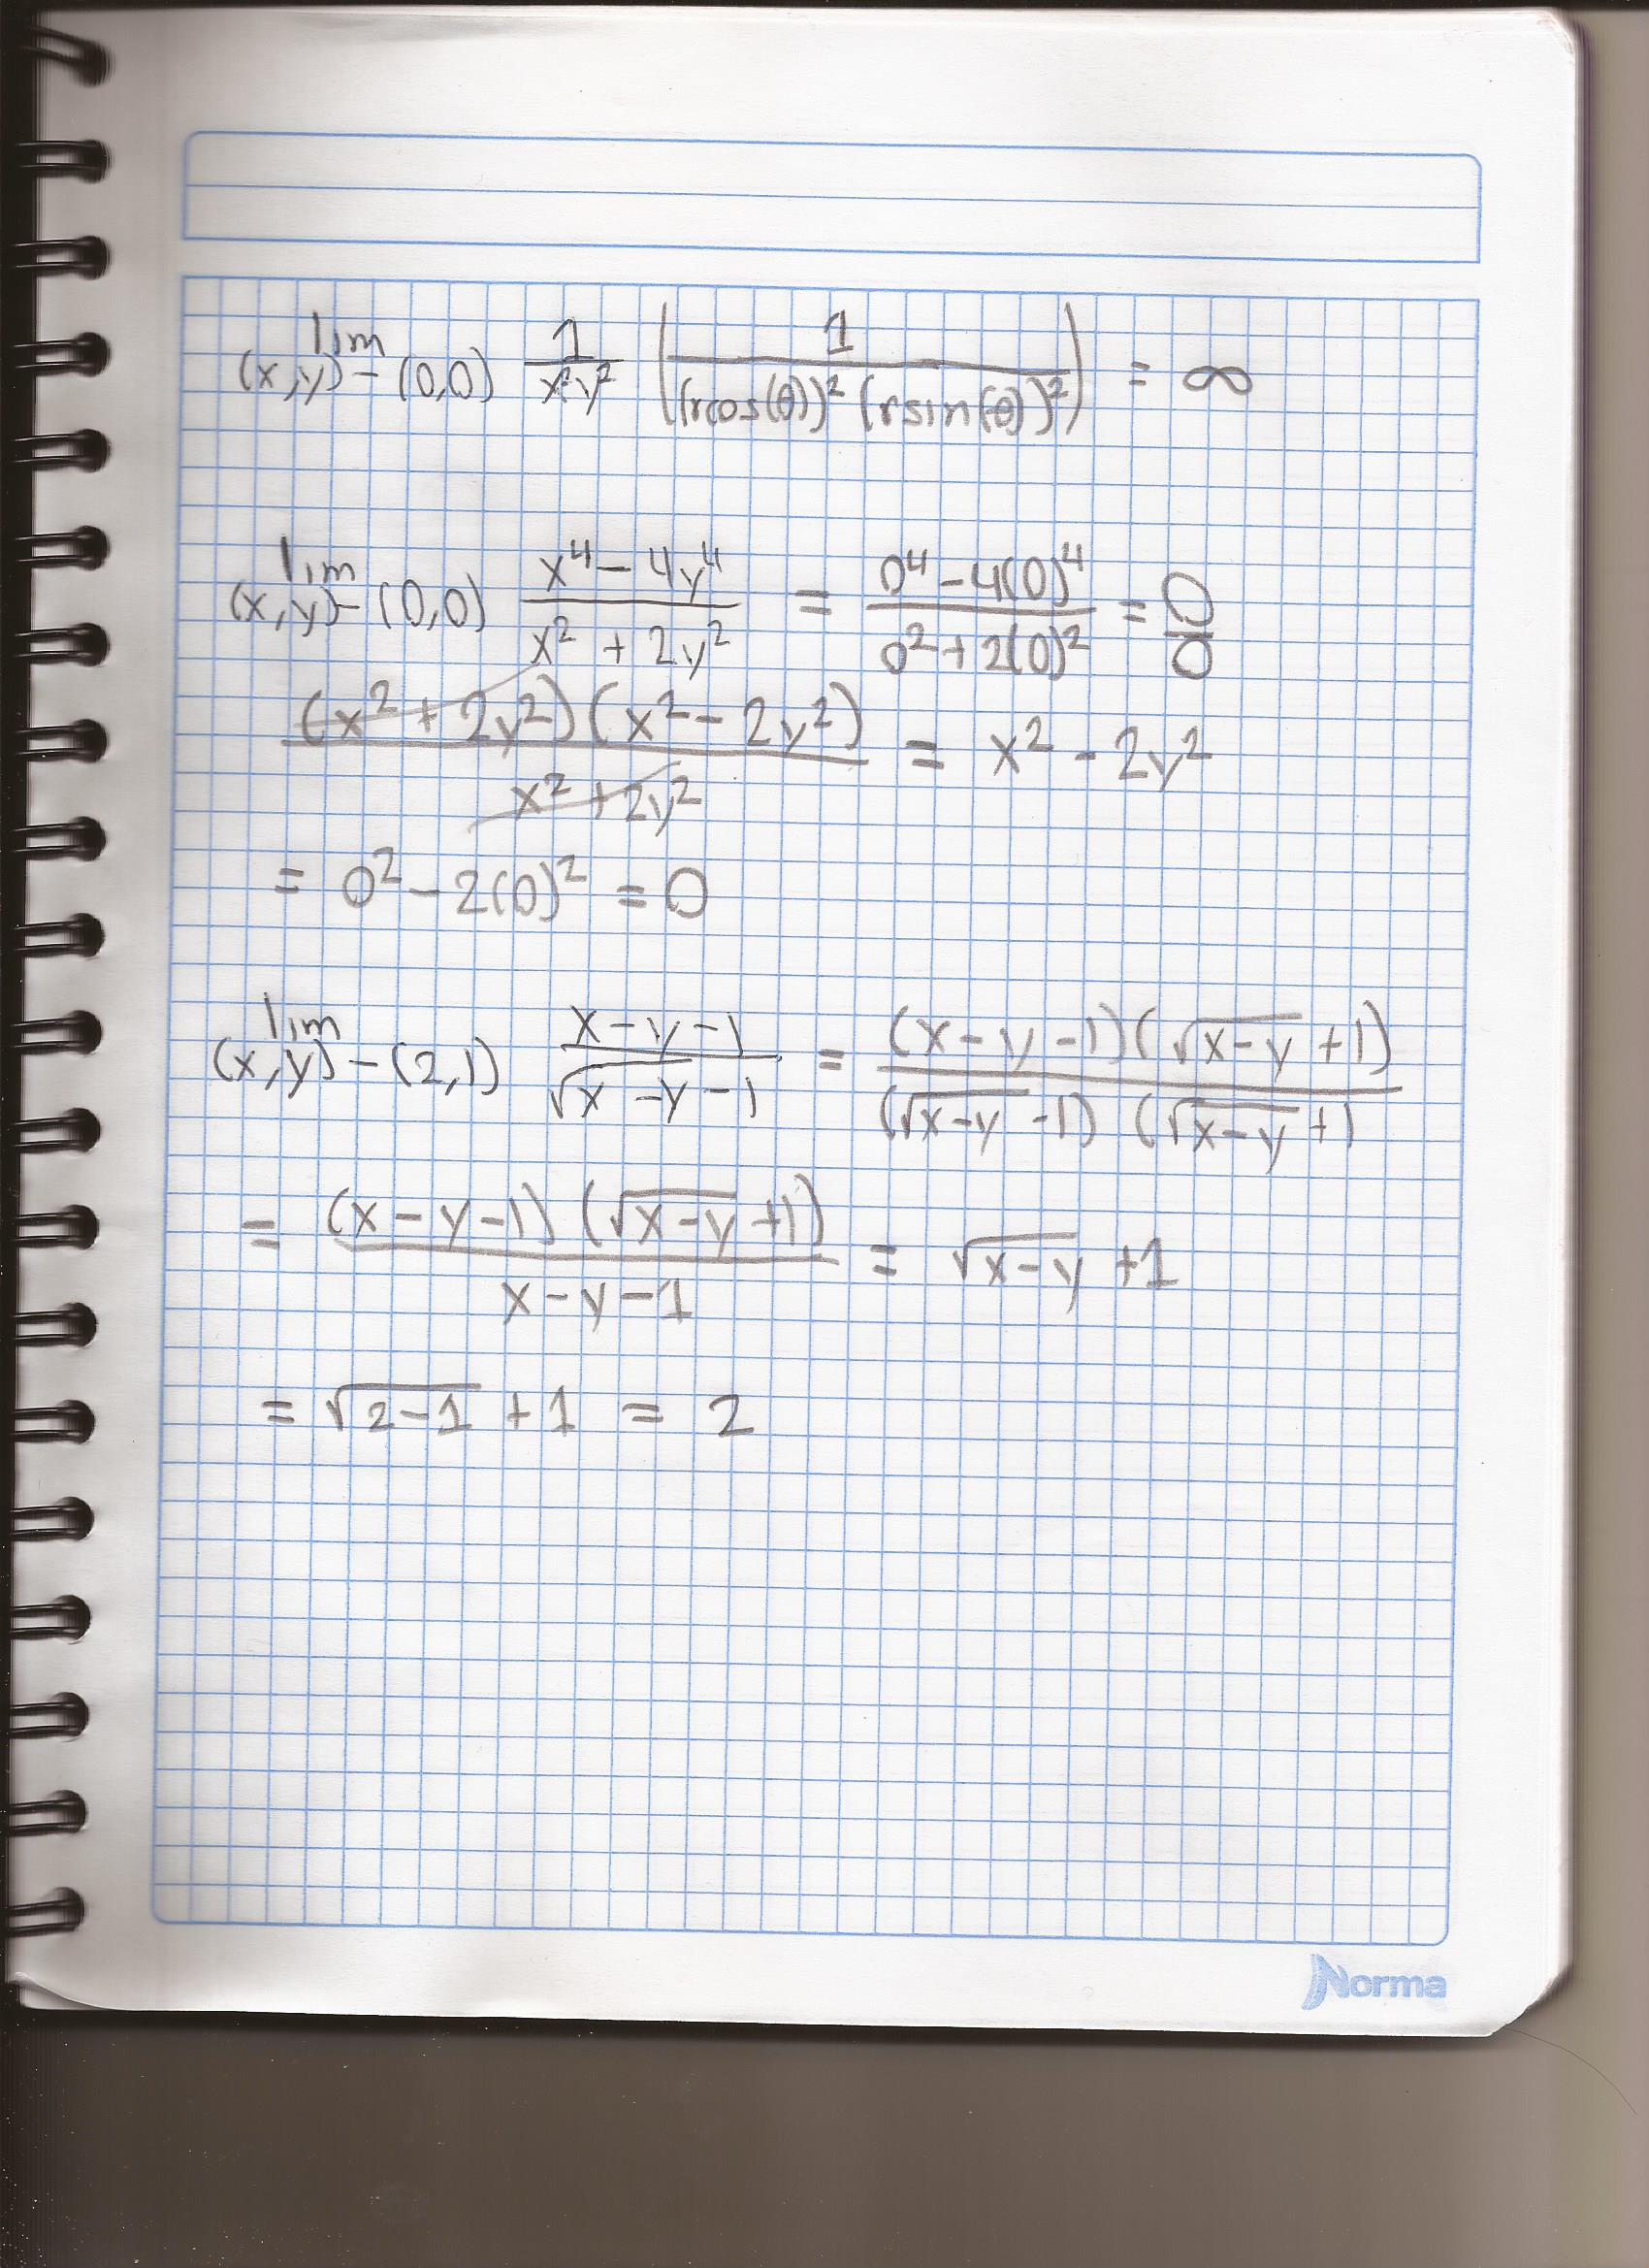 lim
(x,y)-(0,0) 1/x²y² (1/((rcos(θ))² (rsin(θ))²)) = ∞
lim
(x,y)-(0,0) (x⁴-4y⁴)/(x²+2y²) = (0⁴-4(0)⁴)/(0²+2(0)²) = 0/0
(x²+2y²)(x²-2y²)/(x²+2y²) = x²-2y²
= 0²-2(0)² = 0
lim
(x,y)-(2,1) (x-y-1)/(√x-y-1) = (x-y-1)(√x-y+1)/(√x-y-1)(√x-y+1
= (x-y-1)(√x-y+1)/x-y-1 = √x-y+1
= √2-1+1 = 2
Norma